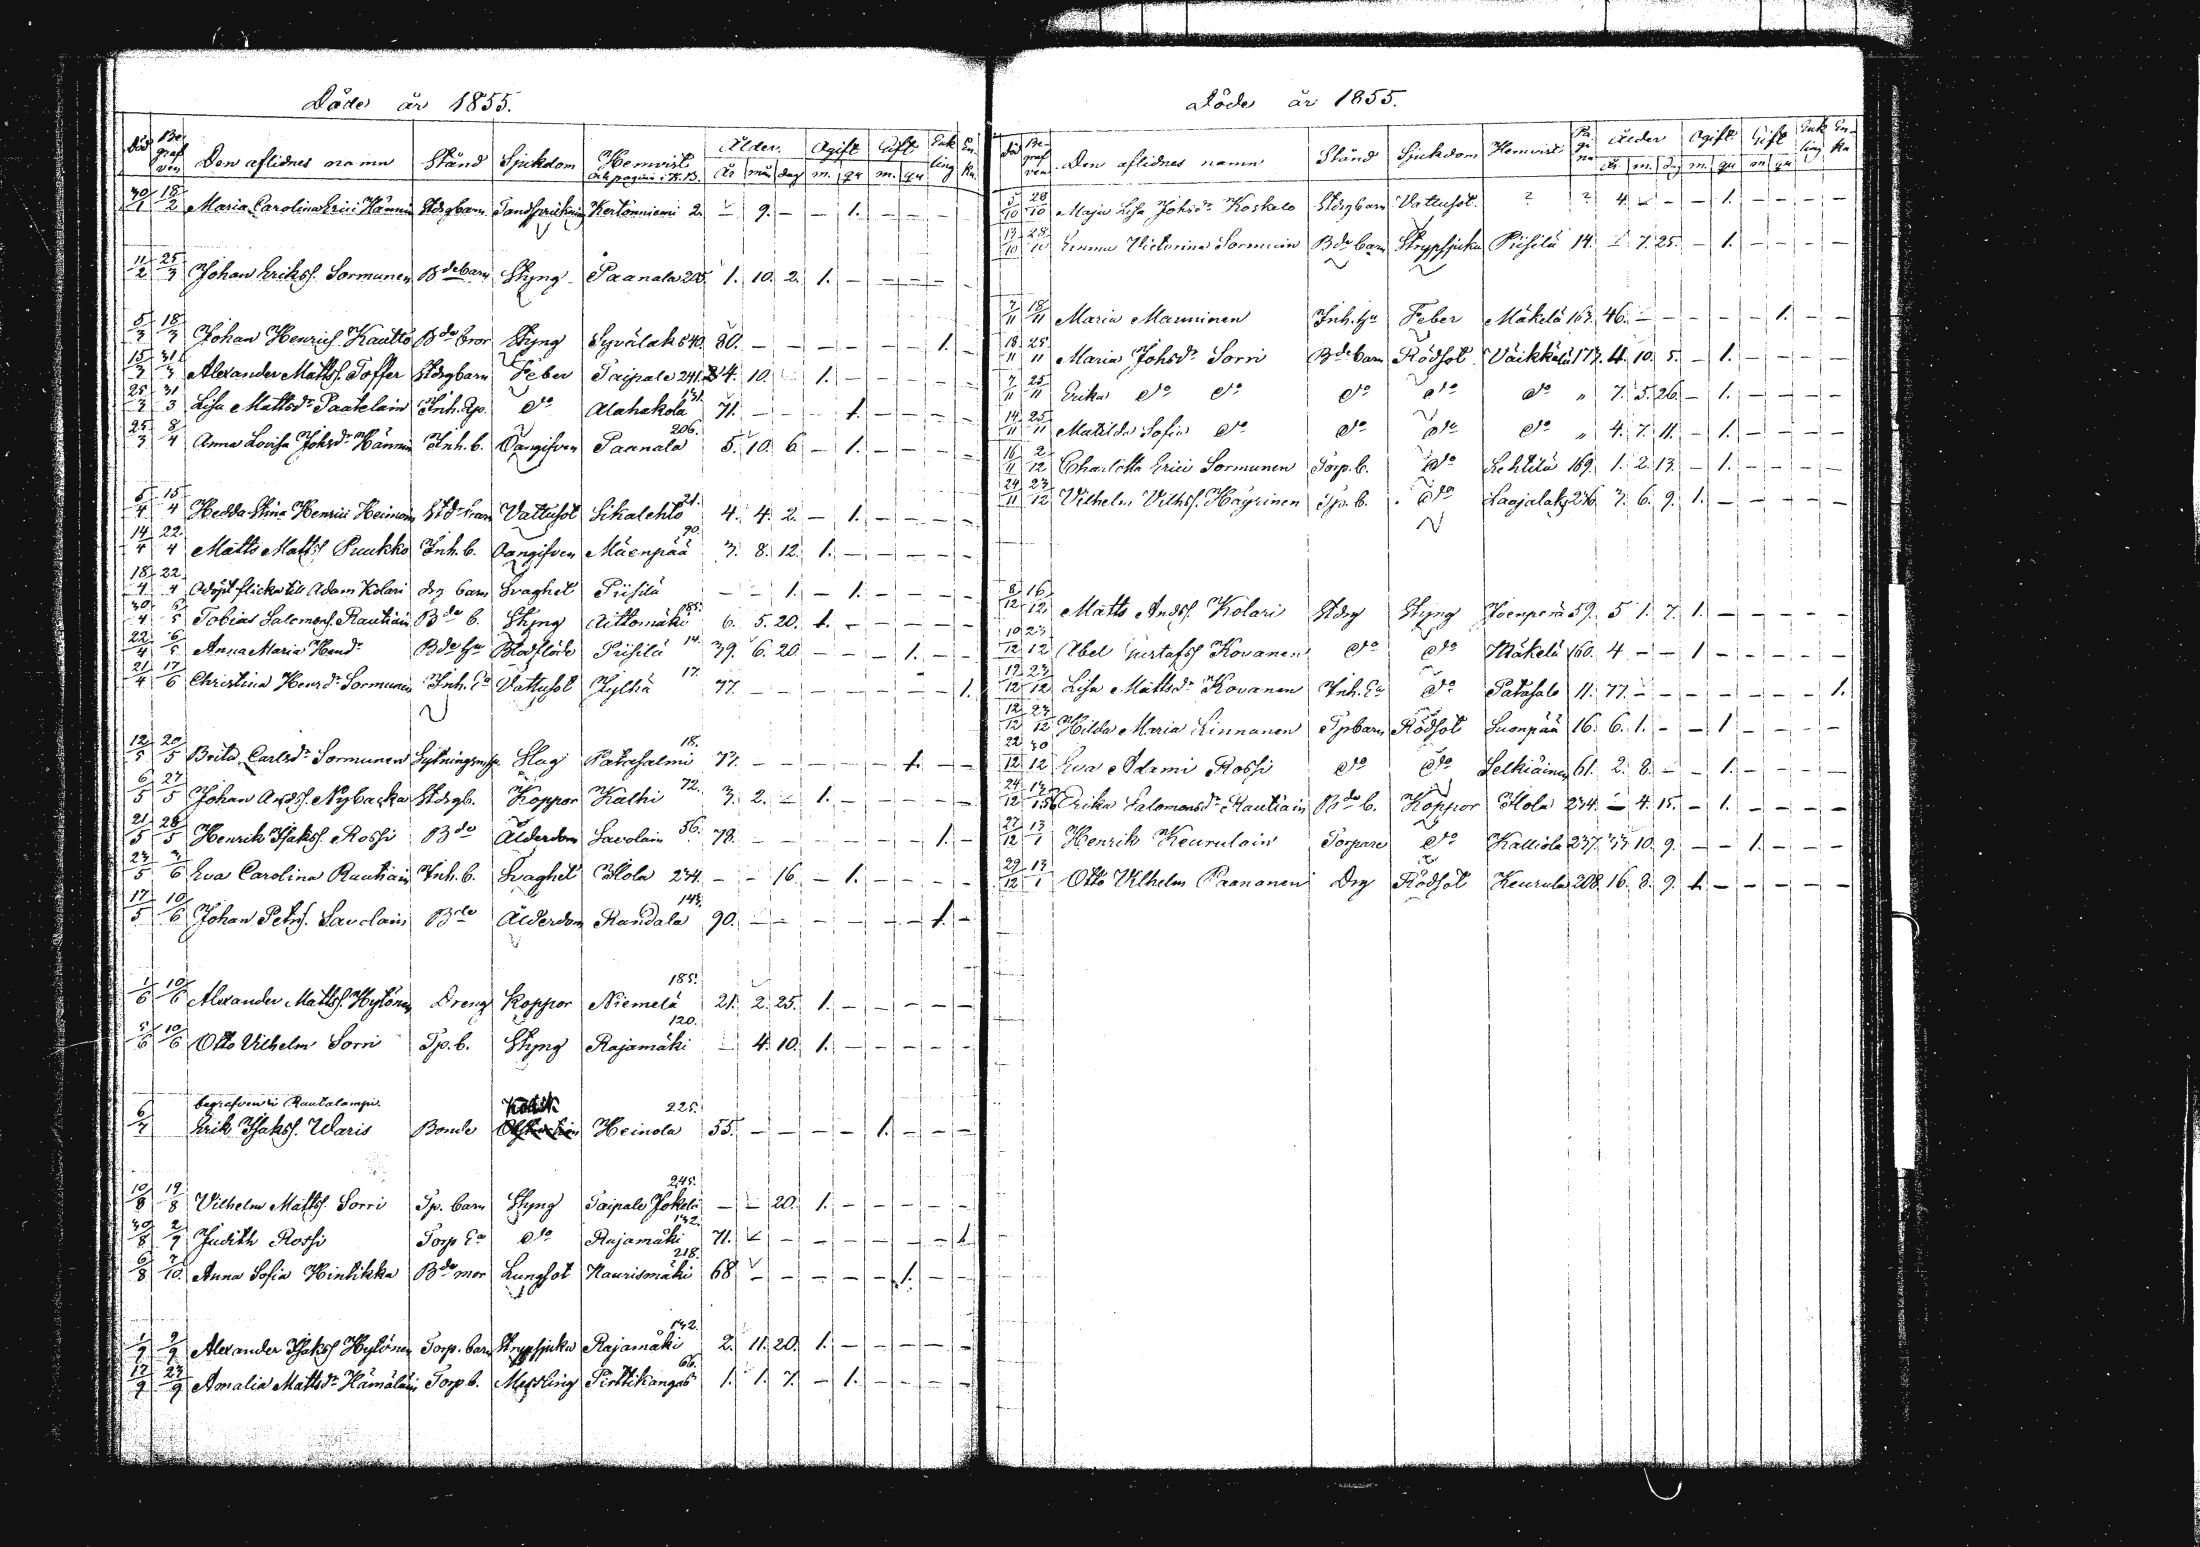 Döde år 1855.
Död Begrafven Den aflidnes namn Stånd Sjukdom Hemvist och pagina i K.B. Ålder. Ogift Gift Enkling Enka
År mån dag m. qu m. qu
30/1 18/2 Maria Carolina Erici Hännin Stdrgbarn Tandsprickning Kertönniemi 2. – 9. – – 1. – – –
11/2 25/3 Johan Erikss. Sormunen Bdebarn Styng Paanala 205. 1. 10. 2. 1. – – – – –
5/3 18/3 Johan Henrics. Kautto Bde bror Styng Syvälak 540. 80. – – – – – – 1. –
15/3 31/3 Alexander Matts. Toffer Stdrgbarn Feber Taipale 241. 4. 10. – 1. – – – – –
25/3 31/3 Lisa Mattsdr Paatelain Inh. do Alahakola 131. 71. – – – 1. – – – –
25/3 8/4 Anna Lovisa Johsdr Hännin Inh. b. Oangifven Paanala 206. 5. 10. 6 – 1. – – – –
5/4 15/4 Hedda Stina Henrici Heimon Stdrbarn Vattusot Sikalehto 21. 4. 4. 2. – 1. – – – –
14/4 22/4 Matts Matts. Puukko Inh. b. Oangifven Mäenpää 90. 3. 8. 12. 1. – – – – –
18/4 22/4 Odöpt flicka till Adam Kolari drg barn Svaghet Piisilä – – 1. – 1. – – – –
30/4 6/5 Tobias Salomons. Rautiain Bde b. Styng Aittomäki 185. 6. 5. 20. 1. – – – – –
22/4 6/5 Anna Maria Hendr Bde hu Blodflöde Piisilä 14. 39. 6. 20 – – – 1. – –
21/4 17/6 Christina Henrdr Sormunen Inh. Ea Vattusot Jylhä 17. 77. – – – – – – – 1.
12/5 20/5 Brita Carlsdr Sormunen Sytningsm Slag Patasalmi 18. 77. – – – – – 1. – –
6/5 27/5 Johan Ands. Nybacka Stdrgb. Koppor Kalhi 72. 3. 2. – 1. – – – – –
21/5 28/5 Henrik Isaks. Rossi Bde Ålderdom Savolain 56. 78. – – – – – – 1. –
23/5 3/6 Eva Carolina Rautiain Inh. b. Svaghet Ahola 234. – – 16. – 1. – – – –
17/5 10/6 Johan Pets. Savolain Bde Ålderdom Randala 143. 90. – – – – – – 1. –
1/6 10/6 Alexander Matts. Hytönen Dreng Koppor Niemelä 185. 21. 2. 25. 1. – – – – –
5/6 10/6 Otto Vilhelm Sorri Tp. b. Styng Rajamäki 120. – 4. 10. 1. – – – – –
begrafven i Rautalampi.
6/7 Erik Isaks. Waris Bonde Kolik Heinola 225. 55. – – – – 1. – – –
10/8 19/8 Vilhelm Matts. Sorri Tp. barn Styng Taipale Jokela 245. – – 20. 1. – – – – –
30/8 2/9 Judith Rossi Torp Ea do Rajamäki 132. 71. – – – – – – – 1.
6/8 7/10 Anna Sofia Hintikka Bde mor Lungsot Naurismäki 218. 68 – – – – – 1. – –
1/9 9/9 Alexander Isaks. Hytönen Torp. barn Strypsjuka Rajamäki 132. 2. 11. 20. 1. – – – – –
12/9 23/9 Amalia Mattsdr Hämäläin Torp b. Messling Pirttikangas 66. 1. 1. 7. – 1. – – – –
Döde år 1855.
Död Begrafven Den aflidnes namn Stånd Sjukdom Hemvist Pagina Ålder Ogift Gift Enkling Enka
År m. dg m. qu m qu
5/10 28/10 Maja Lisa Johsdr Koskelo Stdrgbarn Vattusot ? ? 4. – – – 1. – – – –
13/10 28/10 Emma Victorina Sormuin Bde barn Strypsjuka Piisilä 14. – 7. 25. – 1. – – – –
7/11 18/11 Maria Manninen Inh. hu Feber Mäkelä 163. 46. – – – – – 1. – –
18/11 25/11 Maria Johsdr Sorri Bdebarn Rödsot Väikkälä 177. 11. 10. 5. – 1. – – – –
7/11 25/11 Erika do do do do do „ 7. 5. 26. – 1. – – – –
14/11 25/11 Matilda Sofia do do do do „ 4. 7. 11. – 1. – – – –
16/11 2/12 Charlotta Erici Sormunen Torp. b. do Lehtilä 169. 1. 2. 13. – 1. – – – –
24/11 23/12 Vilhelm Vilhs. Häyrinen Tp. b. do Laajalak 276. 3. 6. 9. 1. – – – – –
8/12 16/12 Matts Ands. Kolari Stdrg Styng Joenperä 59. 5 1. 7. 1. – – – – –
10/12 23/12 Abel Gustafs. Kovanen do do Mäkelä 160. 4 – – 1 – – – – –
12/12 23/12 Lisa Mattsdr Kovanen Inh. Ea do Patasalo 11. 77. – – – – – – – 1.
12/12 23/12 Hilda Maria Linnanen Tpbarn Rödsot Suonpää 16. 6. 1. – – 1 – – – –
22/12 30/12 Eva Adami Rossi do do Selkiäinen 61. 2. 8. – – 1. – – – –
24/12 Erika Salomonsdr Rautiain Bde b. Koppor Ahola 234. – 4. 15. – 1. – – – –
27/12 13/1 Henrik Keurulain Torpare do Kalliola 237. 33. 10. 9. – – 1. – – –
29/12 13/1 Otto Vilhelm Paananen Drg Rödsot Keurula 208. 16. 8. 9. 1. – – – – –